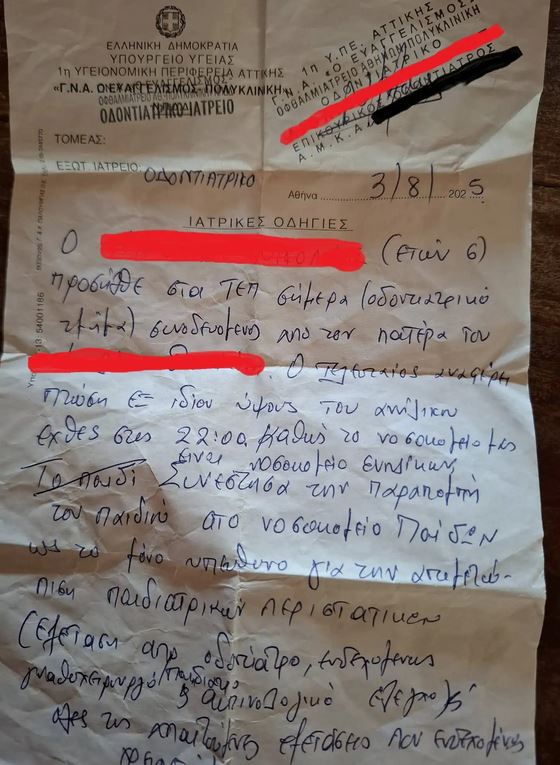 ΕΛΛΗΝΙΚΗ ΔΗΜΟΚΡΑΤΙΑ
ΥΠΟΥΡΓΕΙΟ ΥΓΕΙΑΣ
1η ΥΓΕΙΟΝΟΜΙΚΗ ΠΕΡΙΦΕΡΕΙΑ ΑΤΤΙΚΗΣ
«Γ.Ν.Α. Ο ΕΥΑΓΓΕΛΙΣΜΟΣ - ΠΟΛΥΚΛΙΝΙΚΗ»
ΟΔΟΝΤΙΑΤΡΙΚΟ ΙΑΤΡΕΙΟ
1η Υ.ΠΕ. ΑΤΤΙΚΗΣ
Γ.Ν.Α. «Ο ΕΥΑΓΓΕΛΙΣΜΟΣ»
ΟΦΘΑΛΜΙΑΤΡΕΙΟ ΑΘΗΝΩΝ ΠΟΛΥΚΛΙΝΙΚΗ
ΟΔΟΝΤΙΑΤΡΙΚΟ
ΕΠΙΚΟΥΡΙΚΟΣ ΟΔΟΝΤΙΑΤΡΟΣ
Α.Μ.Κ.Α.
ΤΟΜΕΑΣ:
ΕΞΩΤ. ΙΑΤΡΕΙΟ: ΟΔΟΝΤΙΑΤΡΙΚΟ
Αθήνα 3/8/ 2025
ΙΑΤΡΙΚΕΣ ΟΔΗΓΙΕΣ
Ο (ετών 6)
προσήλθε στα ΤΕΠ σήμερα (οδοντιατρικό
τμήμα) συνοδευόμενος από τον πατέρα του
. Ο τελευταίος αναφέρει
πτώση εξ ιδίου ύψους του ανήλικου
εχθες στις 22:00 καθώς το νοσοκομείο μας
είναι νοσοκομείο ενηλίκων
Το παιδί Συνέστησα την παραπομπή
του παιδιού στο νοσοκομείο Παίδων
ως το μόνο υπεύθυνο για την αντιμετώ-
πιση παιδιατρικών περιστατικών
(εξέταση από οδοντίατρο, ενδεχομένως
γναθοχειρουργό παίδων
ακτινολογικό έλεγχο &
όλες τις απαιτούμενες εξετάσεις που ενδεχομένως